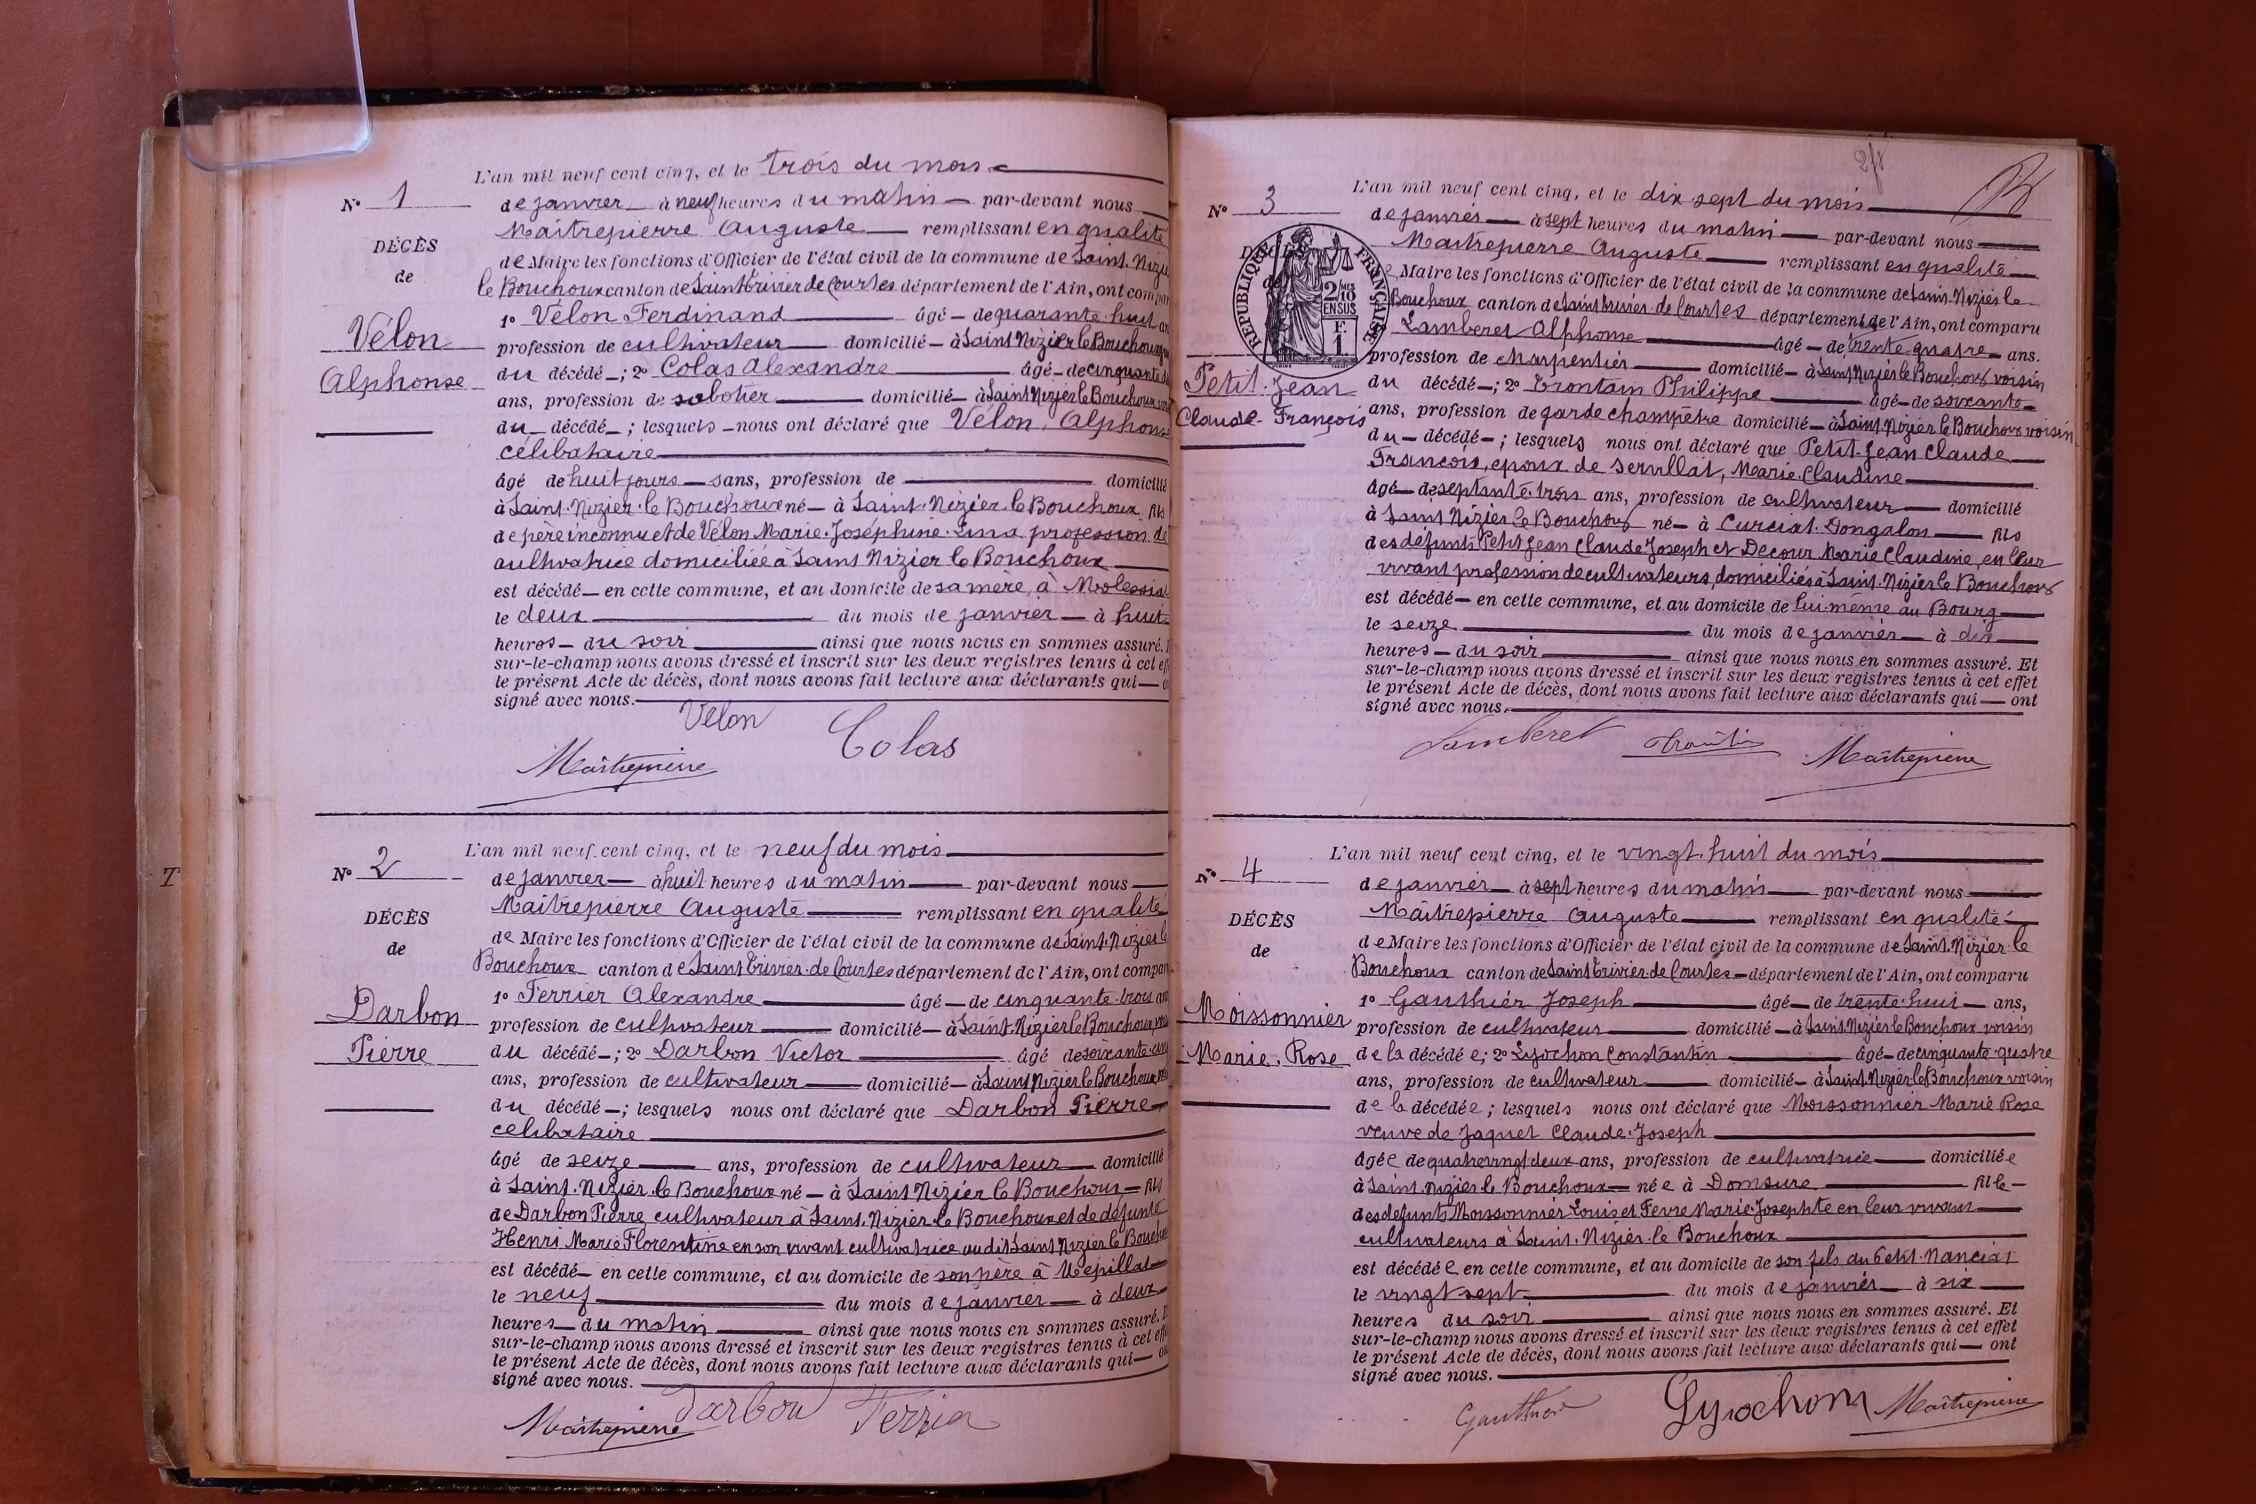 L'an mil neuf cent cinq, et le trois du mois
N° 1
de janvier à neuf heures du matin par-devant nous
Maîtrepierre Auguste remplissant en qualité
DÉCÈS
de Maire les fonctions d'Officier de l'état civil de la commune de Saint-Nizier
de
le Bouchoux canton de Saint Trivier de Courtes département de l'Ain, ont compar
1° Vélon Ferdinand âgé de quarante-huit an
Vélon
profession de cultivateur domicilié à Saint Nizier le Bouchoux
Alphonse
du décédé; 2° Colas Alexandre âgé de cinquante
ans, profession de sabotier domicilié à Saint Nizier le Bouchoux
du décédé; lesquels nous ont déclaré que Vélon, Alphonse
célibataire
âgé de huit jours sans, profession de domicilié
à Saint-Nizier-le Bouchoux né à Saint-Nizier-le Bouchoux fils
de père inconnu et de Vélon Marie-Joséphine-Lina profession de
cultivatrice domiciliée à Saint Nizier le Bouchoux
est décédé en cette commune, et au domicile de sa mère, à
le deux du mois de janvier à huit
heures du soir ainsi que nous nous en sommes assuré.
sur-le-champ nous avons dressé et inscrit sur les deux registres tenus à cet eff
le présent Acte de décès, dont nous avons fait lecture aux déclarants qui
signé avec nous.
Vélon Colas
Maîtrepierre
L'an mil neuf cent cinq, et le neuf du mois
N° 2
de janvier à huit heures du matin par-devant nous
Maîtrepierre Auguste remplissant en qualité
DÉCÈS
de Maire les fonctions d'Officier de l'état civil de la commune de Saint-Nizier le
de
Bouchoux canton de Saint Trivier-de Courtes département de l'Ain, ont compar
1° Ferrier Alexandre âgé de cinquante-trois an
Darbon
profession de cultivateur domicilié à Saint-Nizier le Bouchoux
Pierre
du décédé; 2° Darbon Victor âgé de soixante
ans, profession de cultivateur domicilié à Saint Nizier le Bouchoux
du décédé; lesquels nous ont déclaré que Darbon Pierre
célibataire
âgé de seize ans, profession de cultivateur domicilié
à Saint-Nizier-le Bouchoux né à Saint Nizier le Bouchoux fils
de Darbon Pierre, cultivateur à Saint-Nizier-le Bouchoux et de défunte
Henri Marie Florentine en son vivant cultivatrice au dit Saint Nizier le Bouchoux
est décédé en cette commune, et au domicile de son père à
le neuf du mois de janvier à deux
heures du matin ainsi que nous nous en sommes assuré.
sur-le-champ nous avons dressé et inscrit sur les deux registres tenus à cet effe
le présent Acte de décès, dont nous avons fait lecture aux déclarants qui
signé avec nous.
Maîtrepierre Darbon
L'an mil neuf cent cinq, et le dix sept du mois
N° 3
de janvier à sept heures du matin par-devant nous
Maîtrepierre Auguste remplissant en qualité
DÉCÈS
de
RÉPUBLIQUE FRANÇAISE
2/10 EN SUS
F. 1
Maire les fonctions d'Officier de l'état civil de la commune de Saint-Nizier le
Bouchoux canton de Saint Trivier de Courtes département de l'Ain, ont comparu
Lamberet Alphonse âgé de trente-quatre ans.
profession de charpentier domicilié à Saint Nizier le Bouchoux voisin
Petit-Jean
du décédé; 2° Trontain Philippe âgé de soixante
Claude-François
ans, profession de garde champêtre domicilié à Saint Nizier le Bouchoux voisin
du décédé; lesquels nous ont déclaré que Petit-Jean Claude
François, époux de Servillat, Marie-Claudine
âgé de septante-trois ans, profession de cultivateur domicilié
à Saint Nizier le Bouchoux né à Curciat-Dongalon fils
des défunts Petit Jean Claude Joseph et Decour Marie Claudine, en leur
vivant profession de cultivateurs, domiciliés à Saint-Nizier le Bouchoux
est décédé en cette commune, et au domicile de lui-même au Bourg
le seize du mois de janvier à dix
heures du soir ainsi que nous nous en sommes assuré. Et
sur-le-champ nous avons dressé et inscrit sur les deux registres tenus à cet effet
le présent Acte de décès, dont nous avons fait lecture aux déclarants qui ont
signé avec nous.
Lamberet Maîtrepierre
L'an mil neuf cent cinq, et le vingt-huit du mois
N° 4
de janvier à sept heures du matin par-devant nous
Maîtrepierre Auguste remplissant en qualité
DÉCÈS
de Maire les fonctions d'Officier de l'état civil de la commune de Saint-Nizier-le
de
Bouchoux canton de Saint Trivier-de Courtes département de l'Ain, ont comparu
1° Gauthier Joseph âgé de trente-huit ans,
Moissonnier
profession de cultivateur domicilié à Saint Nizier le Bouchoux voisin
Marie-Rose
de la décédée; 2° Lyochon Constantin âgé de cinquante-quatre
ans, profession de cultivateur domicilié à Saint-Nizier le Bouchoux voisin
de la décédée; lesquels nous ont déclaré que Moissonnier Marie Rose
veuve de Jaquet Claude-Joseph
âgée de quatrevingt deux ans, profession de cultivatrice domiciliée
à Saint-Nizier le Bouchoux née à Domsure fille
des défunts Moissonnier Louis et Fevre Marie-Josephte en leur vivant
cultivateurs à Saint-Nizier-le Bouchoux
est décédée en cette commune, et au domicile de son fils au Petit-Nanciat
le vingt sept du mois de janvier à six
heures du soir ainsi que nous nous en sommes assuré. Et
sur-le-champ nous avons dressé et inscrit sur les deux registres tenus à cet effet
le présent Acte de décès, dont nous avons fait lecture aux déclarants qui ont
signé avec nous.
Gauthier Lyochon Maîtrepierre